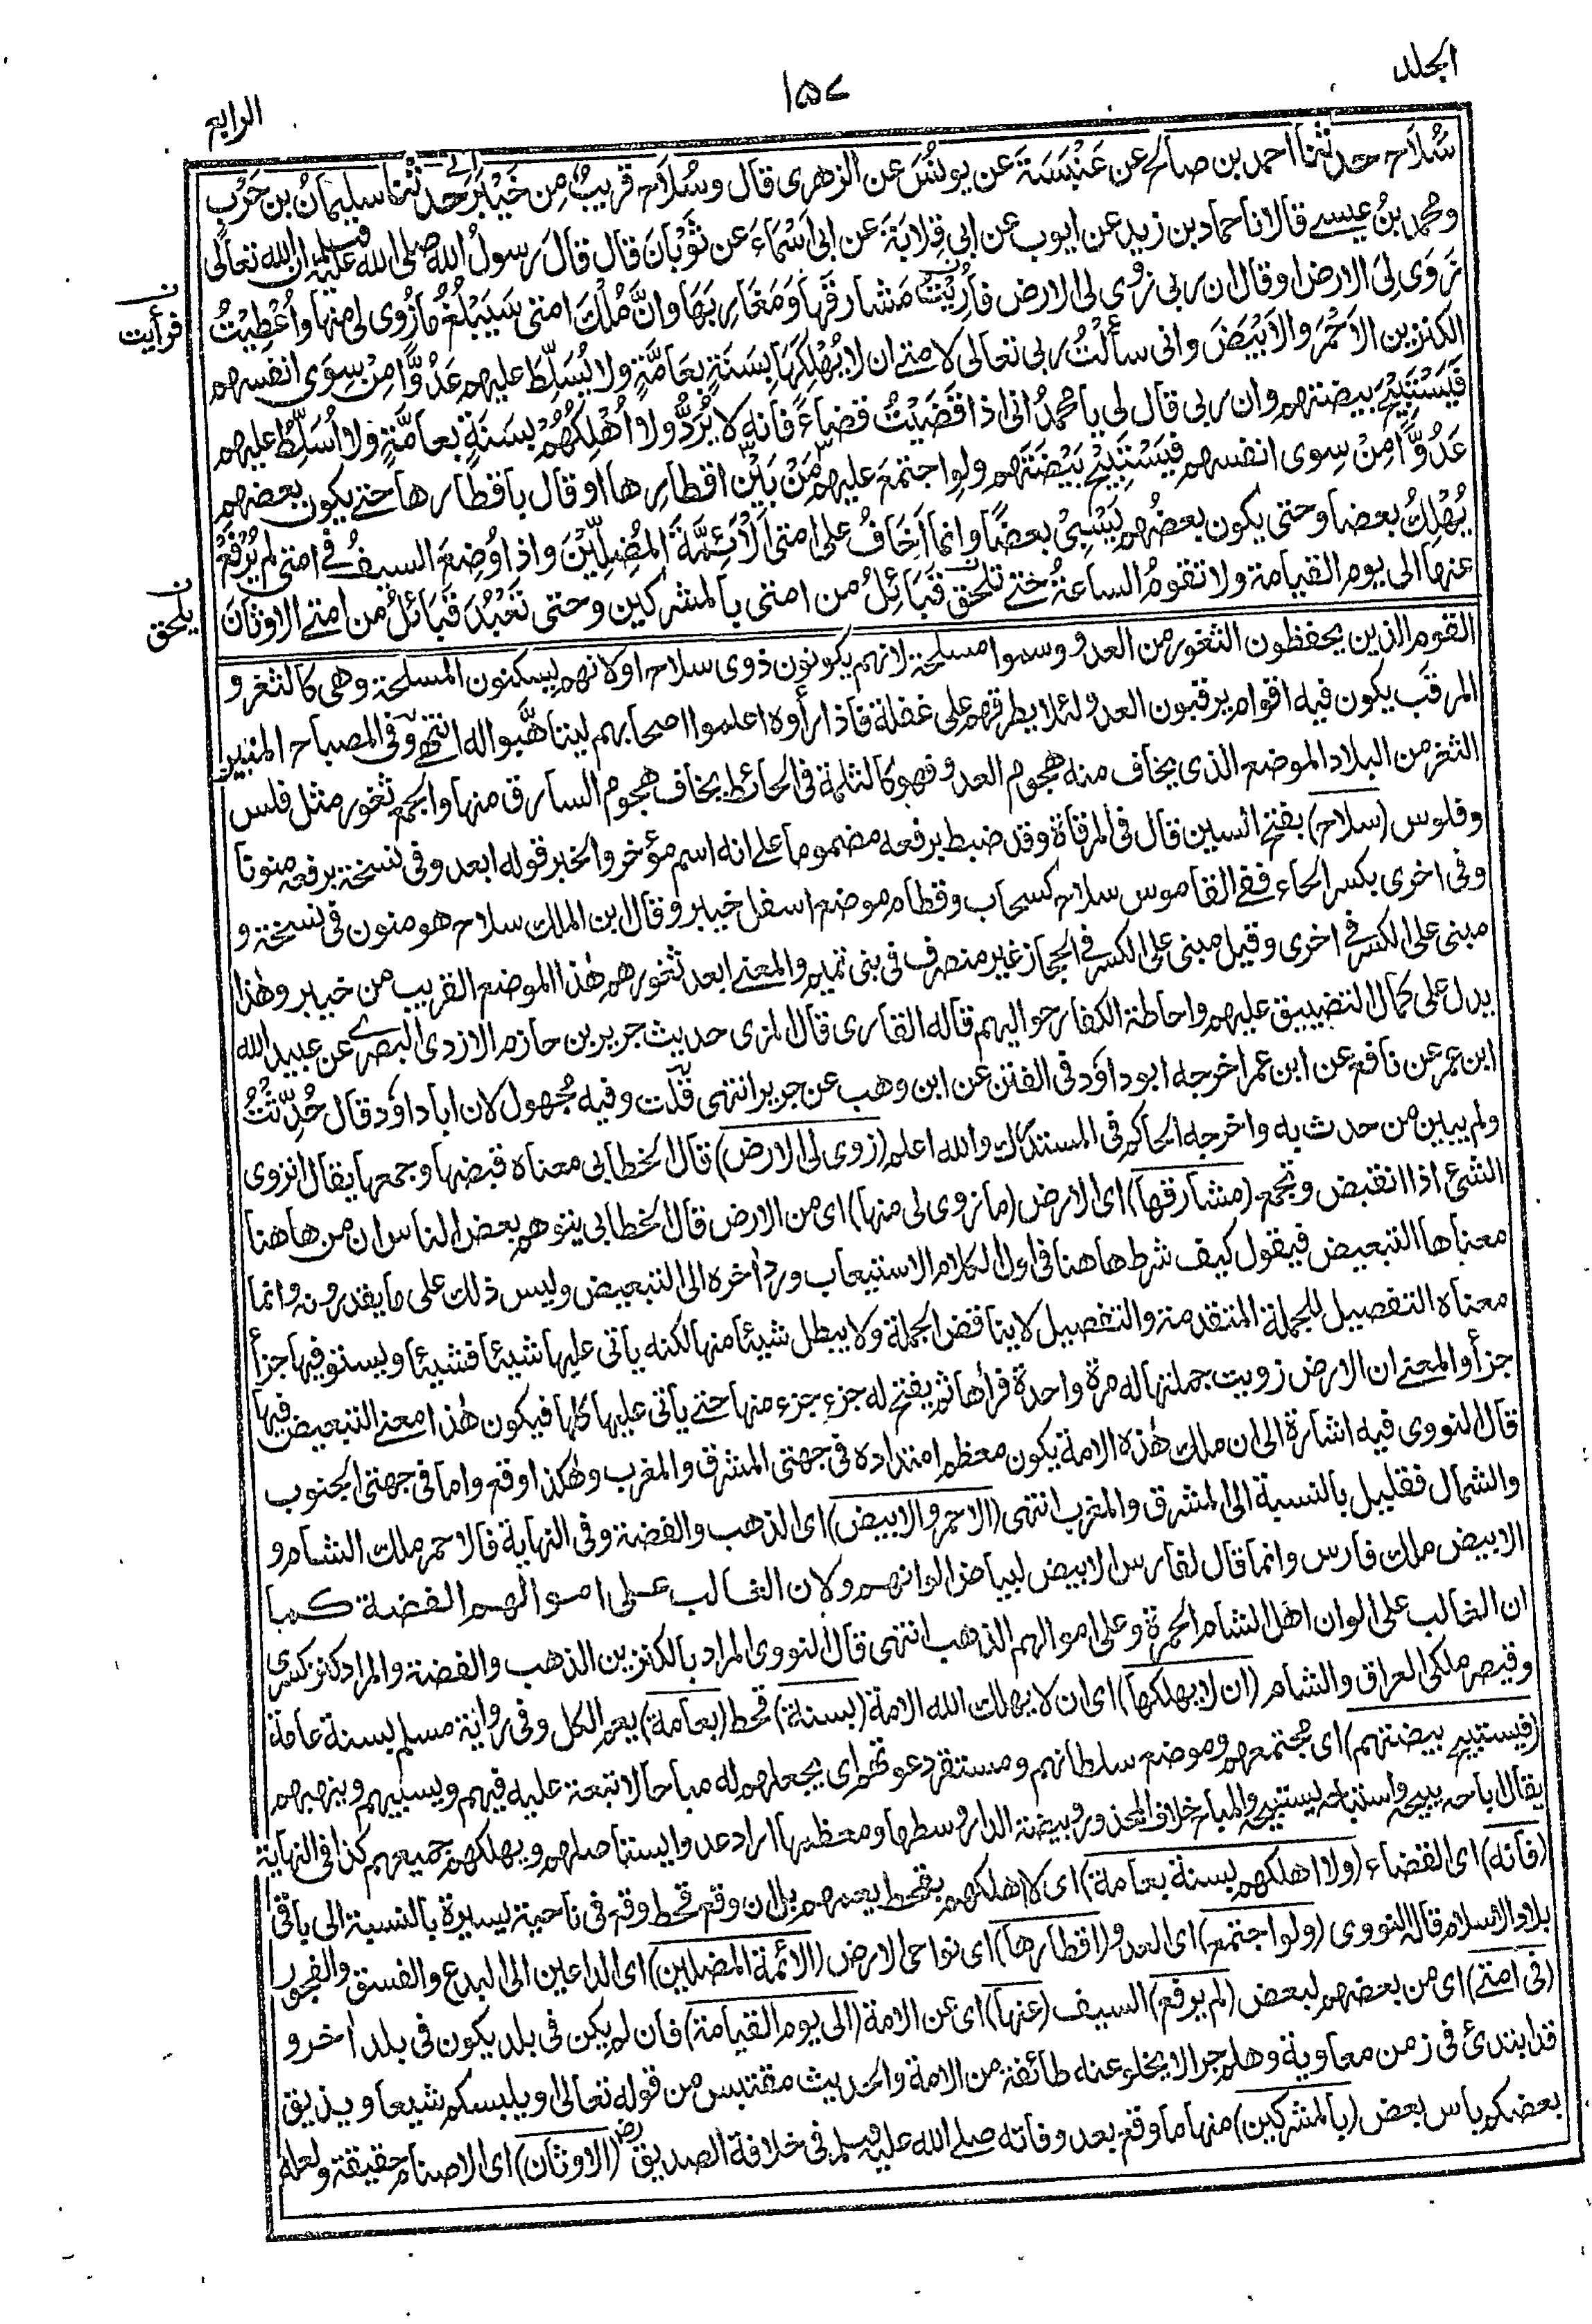 الجلد
١٥٧
الرابع
سُلَاح حدثنا احمد بن صالح عن عَنْبَسَةَ عن يونُسَ عن الزهرى قال وسُلَاح قريبٌ مِن خَيْبَرَ حدثنا سليمانُ بن حَرْبٍ
ومحمد بنُ عيسے قالا نا حماد بن زيد عن ايوب عن ابى قِلابَةَ عن ابى اَسْمَاءَ عن ثَوْبَانَ قال قال رسولُ الله صلى الله عليه وسلم ان الله تعالى
زَوَى لِىَ الارضَ او قال ان ربى زوى لى الارض فَاُرِيْتُ مَشارقَها وَمَغَارِبَهَا وانَّ مُلْكَ امتى سَيَبْلُغُ ما زُوِى لى منها واُعْطِيْتُ
فرأيت
الكنزين الاَحْمَرَ والاَبْيَضَ وانى سألْتُ ربى تعالى لامتے ان لا يُهْلِكَهَا بِسَنَةٍ بِعَامَّةٍ ولا يُسَلِّطَ عليهم عَدُوًّا مِنْ سِوَى انفسهم
فَيَسْتَبِيْحَ بيضتهم وان ربى قال لى يا محمدُ انى اذا قَضَيْتُ قضاءً فانه لا يُرَدُّ ولا اُهْلِكُهُمْ بِسَنَةٍ بعامَّةٍ ولا اُسَلِّطُ عليهم
عَدُوًّا مِنْ سِوى انفسهم فيَسْتَبِيْحَ بَيْضَتَهم ولو اجتمَعَ عليهم مَنْ بَيْنَ اقطارِها او قال باقطارها حتے يكون بعضهم
يُهْلِكُ بعضا وحتى يكون بعضُهم يَسْبِىْ بعضًا وانما اَخَافُ على امتى الاَئِمَّةَ المُضِلِّيْنَ واذا وُضِعَ السيفُ فے امتى لم يُرْفَعْ
عنها الى يوم القيامة ولا تقومُ الساعةُ حتے تلحق قَبَائِلُ من امتى بالمشركين وحتى تَعْبُدَ قَبَائلُ من امتے الاوثانَ
يلحق
القوم الذين يحفظون الثغور من العدو وسموا مسلحة لانهم يكونون ذوى سلاح او لانهم يسكنون المسلحة وهى كالثغر و
المرقب يكون فيه اقوام يرقبون العدو لئلا يطرقهم على غفلة فاذا رأوه اعلموا اصحابهم ليتأهَّبوا له انتهى وفى المصباح المنير
الثغر من البلاد الموضع الذى يخاف منه هجوم العدو فهو كالثلمة فى الحائط يخاف هجوم السارق منها والجمع ثغور مثل فلس
وفلوس (سلاح) بفتح السين قال فى المرقاة وقد ضبط برفعه مضموما على انه اسم مؤخر والخبر قوله ابعد وفى نسخة برفعه منونا
وفى اخرى بكسر الحاء ففى القاموس سلاح كسحاب وقطام موضع اسفل خيبر وقال ابن الملك سلاح هو منون فى نسخة و
مبنى على الكسر فے اخرى وقيل مبنى على الكسر فے الحجاز غير منصرف فى بنى تميم والمعنے ابعد ثغورهم هٰذا الموضع القريب من خيبر وهٰذا
يدل على كمال التضييق عليهم واحاطة الكفار حواليهم قاله القارى قال المزى حديث جرير بن حازم الازدى البصرے عن عبيد الله
ابن عمر عن نافع عن ابن عمر اخرجه ابو داؤد فى الفتن عن ابن وهب عن جرير انتهى قلت وفيه مجهول لان ابا داؤد قال حُدِّثْتُ
ولم يبين من حدث به واخرجه الحاكم فى المستدرك والله اعلم (زوى لى الارض) قال الخطابى معناه قبضها وجمعها يقال انزوى
الشئ اذا انقبض وتجمع (مشارقها) اى الارض (ما زوى لى منها) اى من الارض قال الخطابى يتوهم بعض الناس ان من هاهنا
معناها التبعيض فيقول كيف شرط هاهنا فى اول الكلام الاستيعاب ورد اخره الى التبعيض وليس ذلك على ما يقدرونه وانما
معناه التفصيل للجملة المتقدمة والتفصيل لا يناقض الجملة ولا يبطل شيئا منها لكنه يأتى عليها شيئا فشيئا ويستوفيها جزأ
جزأ والمعنے ان الارض زويت جملتها له مرة واحدة فرأها ثم يفتح له جزء جزء منها حتے يأتى عليها كلها فيكون هٰذا معنے التبعيض فيها
قال النووى فيه اشارة الى ان ملك هٰذه الامة يكون معظم امتداده فى جهتى المشرق والمغرب وهٰكذا وقع واما فى جهتى الجنوب
والشمال فقليل بالنسبة الى المشرق والمغرب انتهى (الاحمر والابيض) اى الذهب والفضة وفى النهاية فالاحمر ملك الشام و
الابيض ملك فارس وانما قال لفارس الابيض لبياض الوانهم ولان الغالب على اموالهم الفضة كما
ان الغالب على الوان اهل الشام الحمرة وعلى اموالهم الذهب انتهى قال النووى المراد بالكنزين الذهب والفضة والمراد كنز كسرى
وقيصر ملكى العراق والشام (ان لا يهلكها) اى ان لا يهلك الله الامة (بسنة) قحط (بعامة) يعم الكل وفى رواية مسلم بسنة عامة
(فيستبيح بيضتهم) اى مجتمعهم وموضع سلطانهم ومستقر دعوتهم اى يجعلهم له مباحا لا تبعة عليه فيهم ويسبيهم وينهبهم
يقال اباحه يبيحه واستباحه يستبيحه والمباح خلاف المحذور وبيضة الدار وسطها ومعظمها اراد عدوا يستأصلهم ويهلكهم جميعهم كذا فى النهاية
(فانه) اى القضاء (ولا اهلكهم بسنة بعامة) اى لا اهلكهم بقحط يعمهم بل ان وقع قحط وقع فى ناحية يسيرة بالنسبة الى باقى
بلاد الاسلام قاله النووى (ولو اجتمع) اى العدو (اقطارها) اى نواحى الارض (الائمة المضلين) اى الداعين الى البدع والفسق والفجور
(فى امتے) اى من بعضهم لبعض (لم يرفع) السيف (عنها) اى عن الامة (الى يوم القيامة) فان لم يكن فى بلد يكون فى بلد اٰخر و
قد ابتدئ فى زمن معاوية وهلم جرا لا يخلو عنه طائفة من الامة والحديث مقتبس من قوله تعالىٰ او يلبسكم شيعا ويذيق
بعضكم بأس بعض (بالمشركين) منها ما وقع بعد وفاته صلے الله عليه وسلم فى خلافة الصديق رض (الاوثان) اى الاصنام حقيقة ولعله